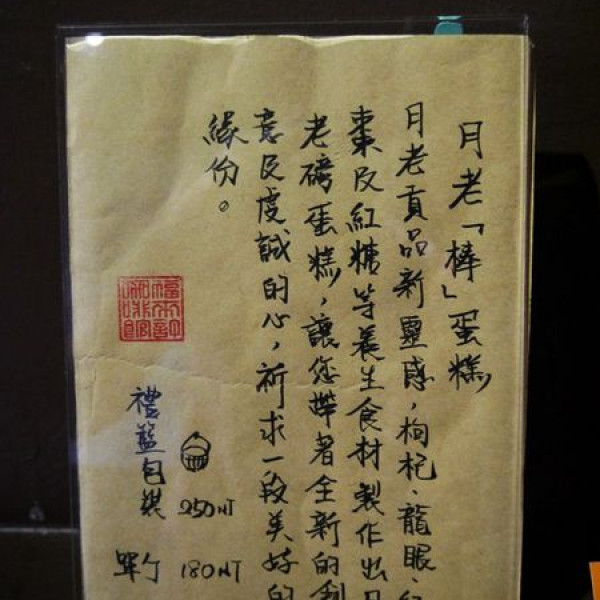 月老「棒」蛋糕
月老貢品新靈感，枸杞、龍眼、
棗及紅糖等養生食材製作出
老磅蛋糕，讓您帶著全新的創
意及虔誠的心，祈求一段美好的
緣份。
禮籃包裝 250NT
單個 180NT